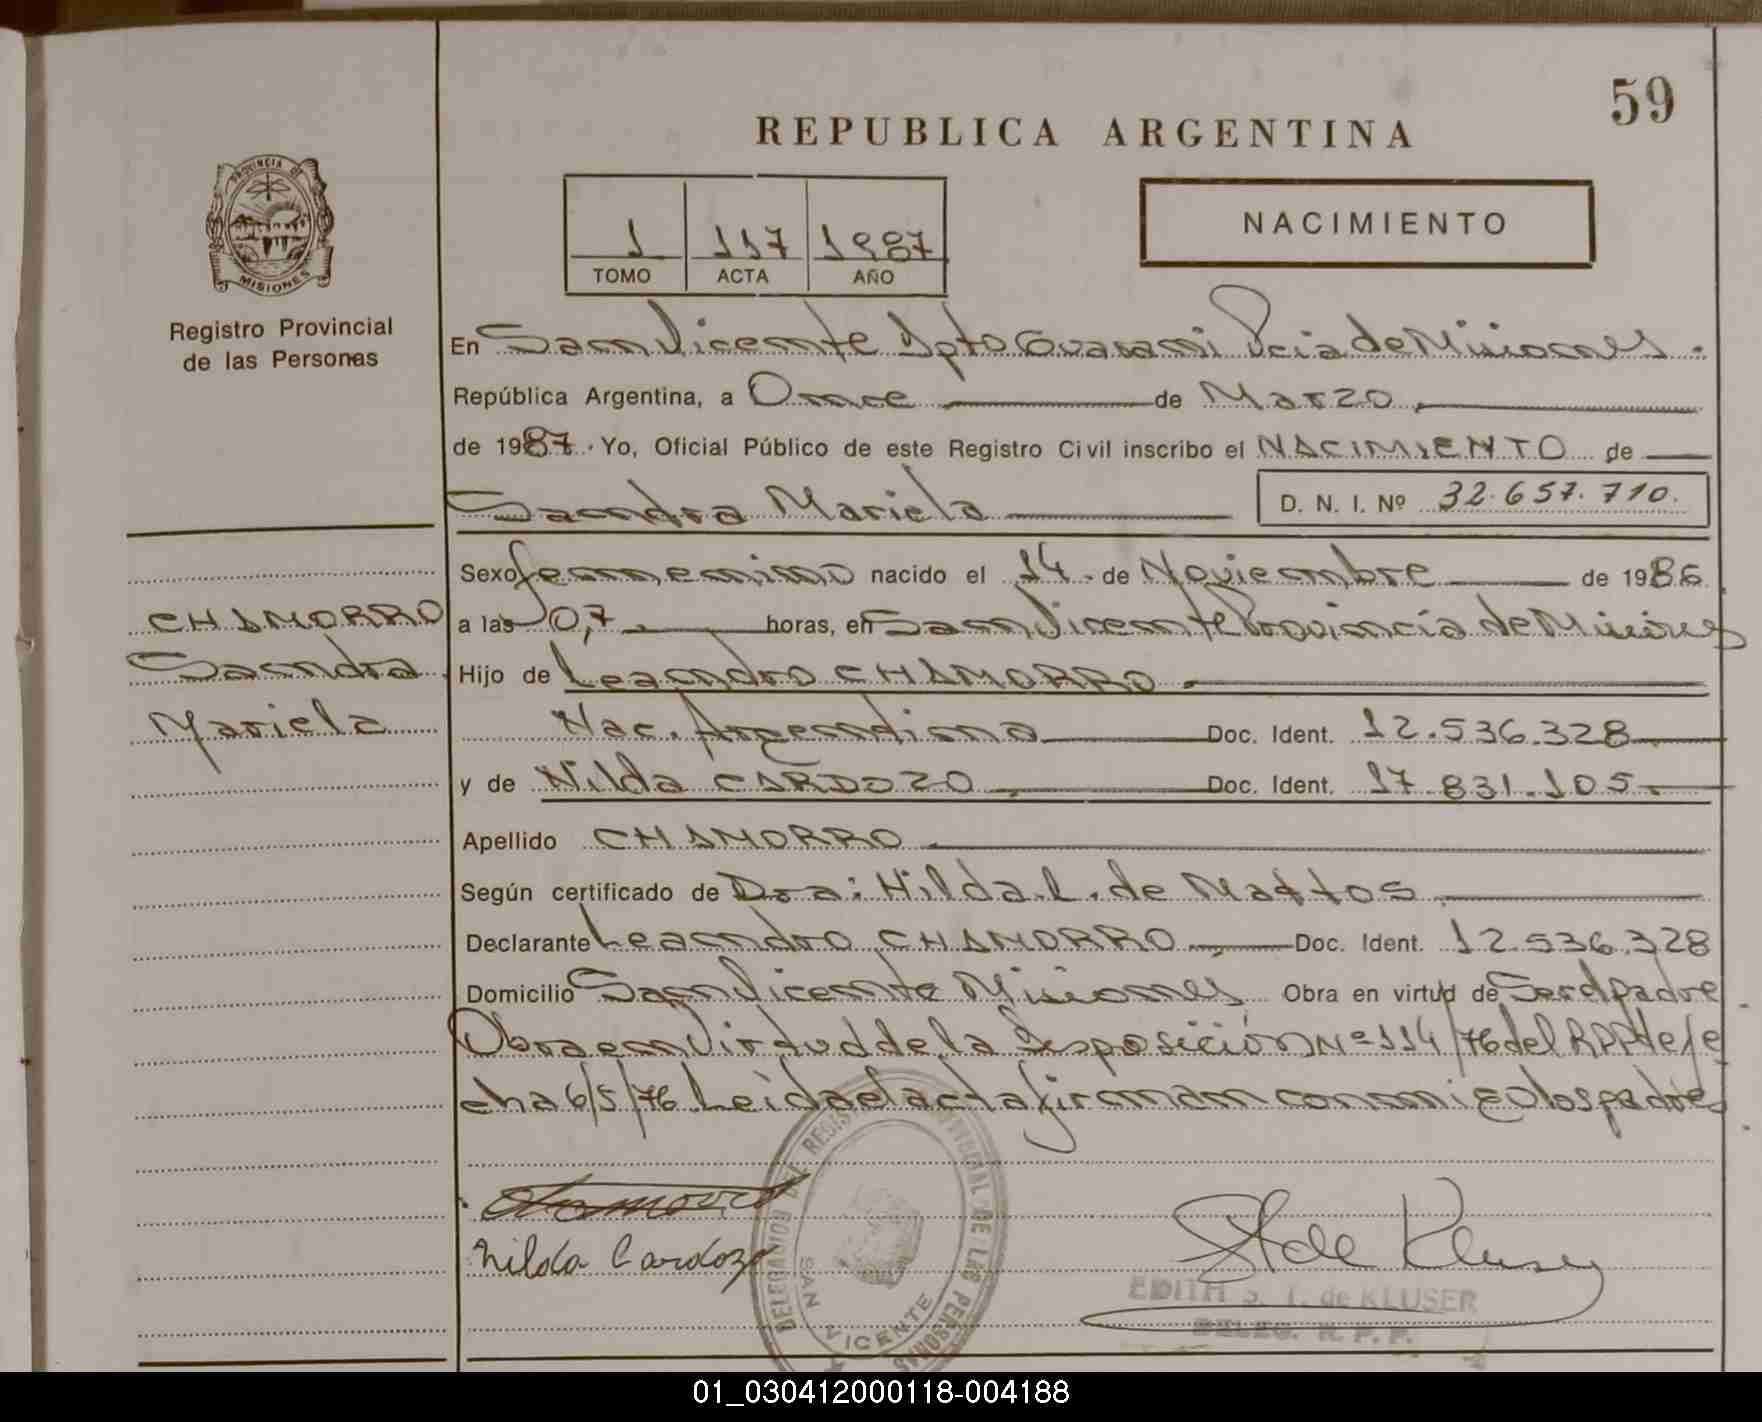 59
REPUBLICA ARGENTINA
PROVINCIA DE MISIONES
Registro Provincial
de las Personas
1 117 1987
TOMO ACTA AÑO
NACIMIENTO
En San Vicente Dpto Guarani Pcia de Misiones.
República Argentina, a Once de Marzo
de 1987. Yo, Oficial Público de este Registro Civil inscribo el NACIMIENTO de
Sandra Mariela D. N. I. Nº 32.657.710.
CHAMORRO
Sandra
Mariela
Sexo femenino nacido el 14 de Noviembre de 1986
a las 0,7 horas, en San Vicente Provincia de Misiones
Hijo de Leandro CHAMORRO
Nac. Argentina Doc. Ident. 12.536.328
y de Nilda CARDOZO Doc. Ident. 17.831.105
Apellido CHAMORRO
Según certificado de Dra: Hilda L. de Mattos
Declarante Leandro CHAMORRO Doc. Ident. 12.536.328
Domicilio San Vicente Misiones Obra en virtud de Ser el padre
Obra en Virtud de la Disposición Nº 114/76 del RPP de fe
cha 6/5/76. Leida el acta firman conmigo los padres
Nilda Cardozo
DELEGACION DEL REGISTRO PROVINCIAL DE LAS PERSONAS
SAN VICENTE
E I de Kluser
EDITH S. I. de KLUSER
DELEG. R. P. P.
01_030412000118-004188